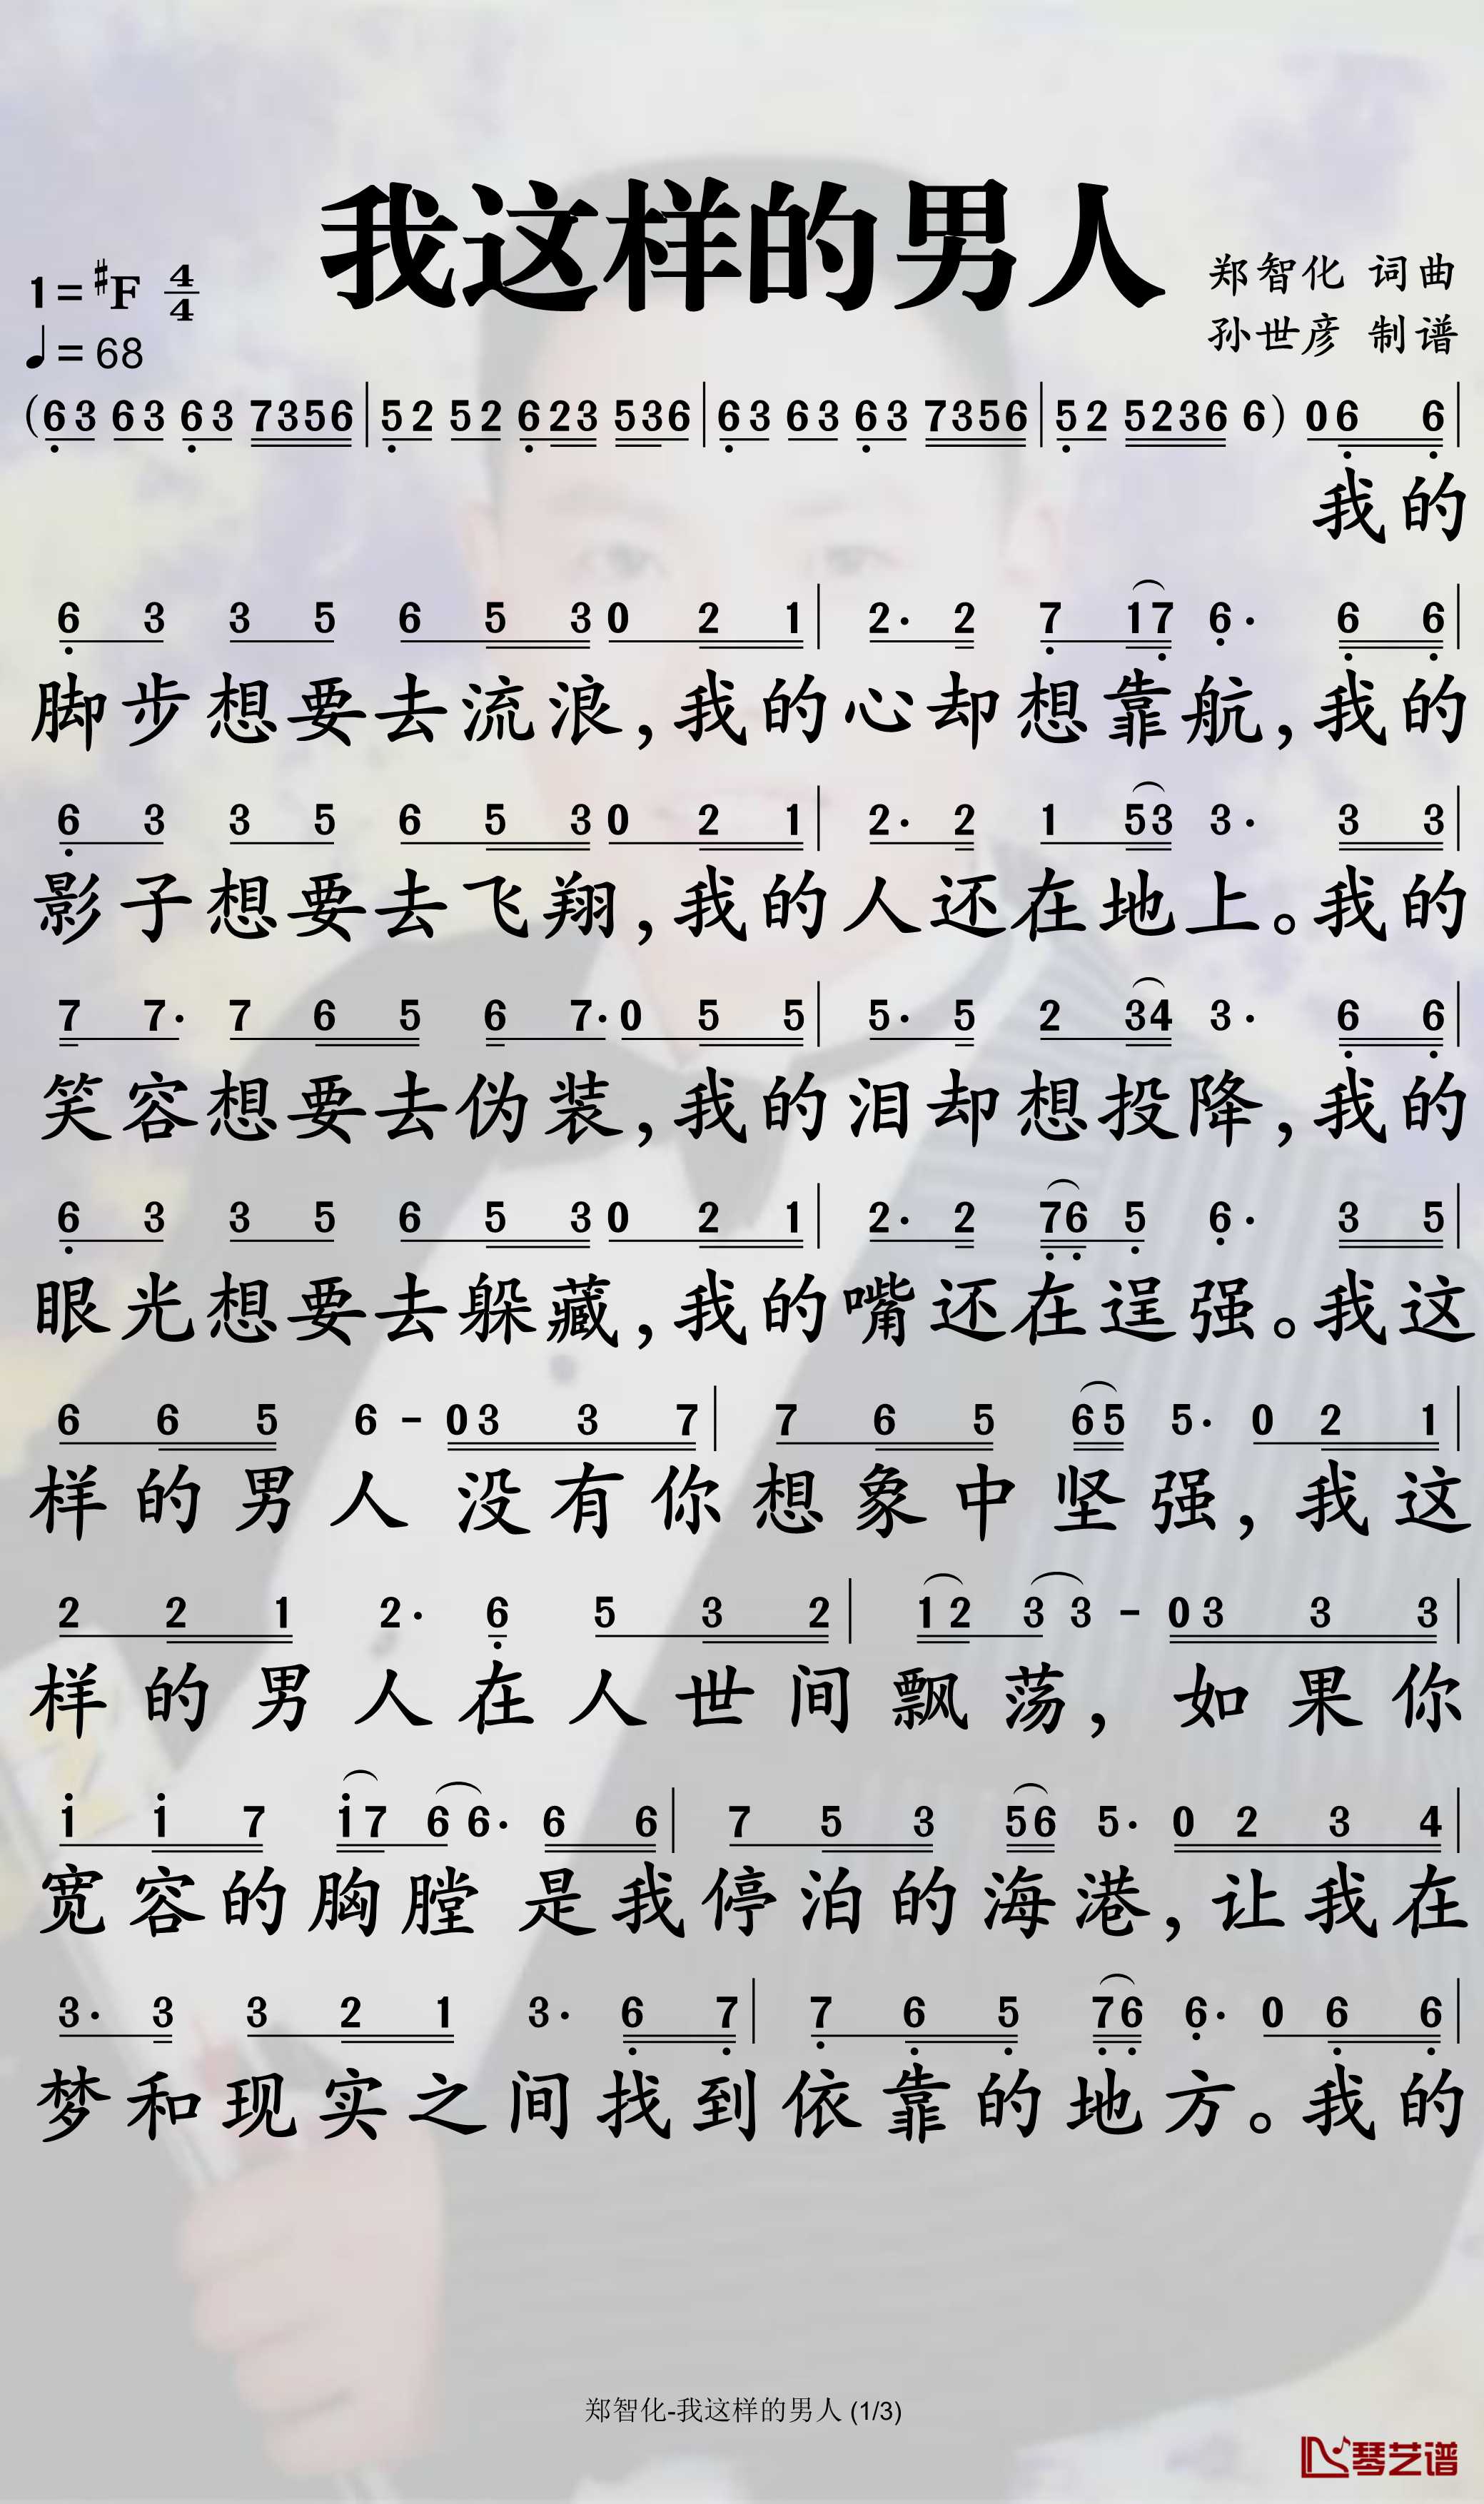 我这样的男人
1=#F 4/4
郑智化 词曲
♩=68
孙世彦 制谱
(63 63 63 7356|52 52 623 536|63 63 63 7356|52 5236 6) 06 6|
我的
6 3 3 5 6 5 3 0 2 1|2· 2 7 17 6· 6 6|
脚步想要去流浪,我的心却想靠航,我的
6 3 3 5 6 5 3 0 2 1|2· 2 1 53 3· 3 3|
影子想要去飞翔,我的人还在地上。我的
7 7· 7 6 5 6 7· 0 5 5|5· 5 2 34 3· 6 6|
笑容想要去伪装,我的泪却想投降,我的
6 3 3 5 6 5 3 0 2 1|2· 2 76 5 6· 3 5|
眼光想要去躲藏,我的嘴还在逞强。我这
6 6 5 6 - 03 3 7|7 6 5 65 5· 0 2 1|
样的男人没有你想象中坚强,我这
2 2 1 2· 6 5 3 2|12 3 3 - 03 3 3|
样的男人在人世间飘荡,如果你
i i 7 i7 6 6· 6 6|7 5 3 56 5· 0 2 3 4|
宽容的胸膛是我停泊的海港,让我在
3· 3 3 2 1 3· 6 7|7 6 5 76 6· 0 6 6|
梦和现实之间找到依靠的地方。我的
郑智化-我这样的男人 (1/3)
琴艺谱